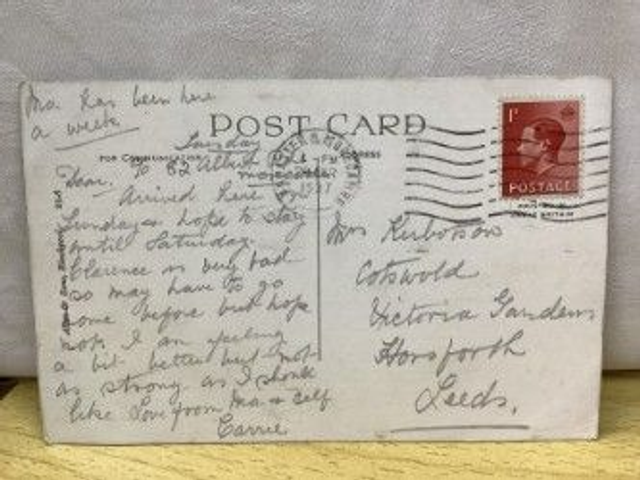 Ma has been here
a week
POST CARD
Sunday
FOR COMMUNICATION
ADDRESS
To 82 Albert
Morecambe
Dear.
Arrived here on
Sunday & hope to stay
until Saturday.
Clarence is very bad
so may have to go
home before but hope
not. I am feeling
a bit better but not
as strong as I should
like Love from Ma & self
Carrie
1937
1D
POSTAGE
Mrs
Cotswold
Victoria Gardens
Horsforth
Leeds.